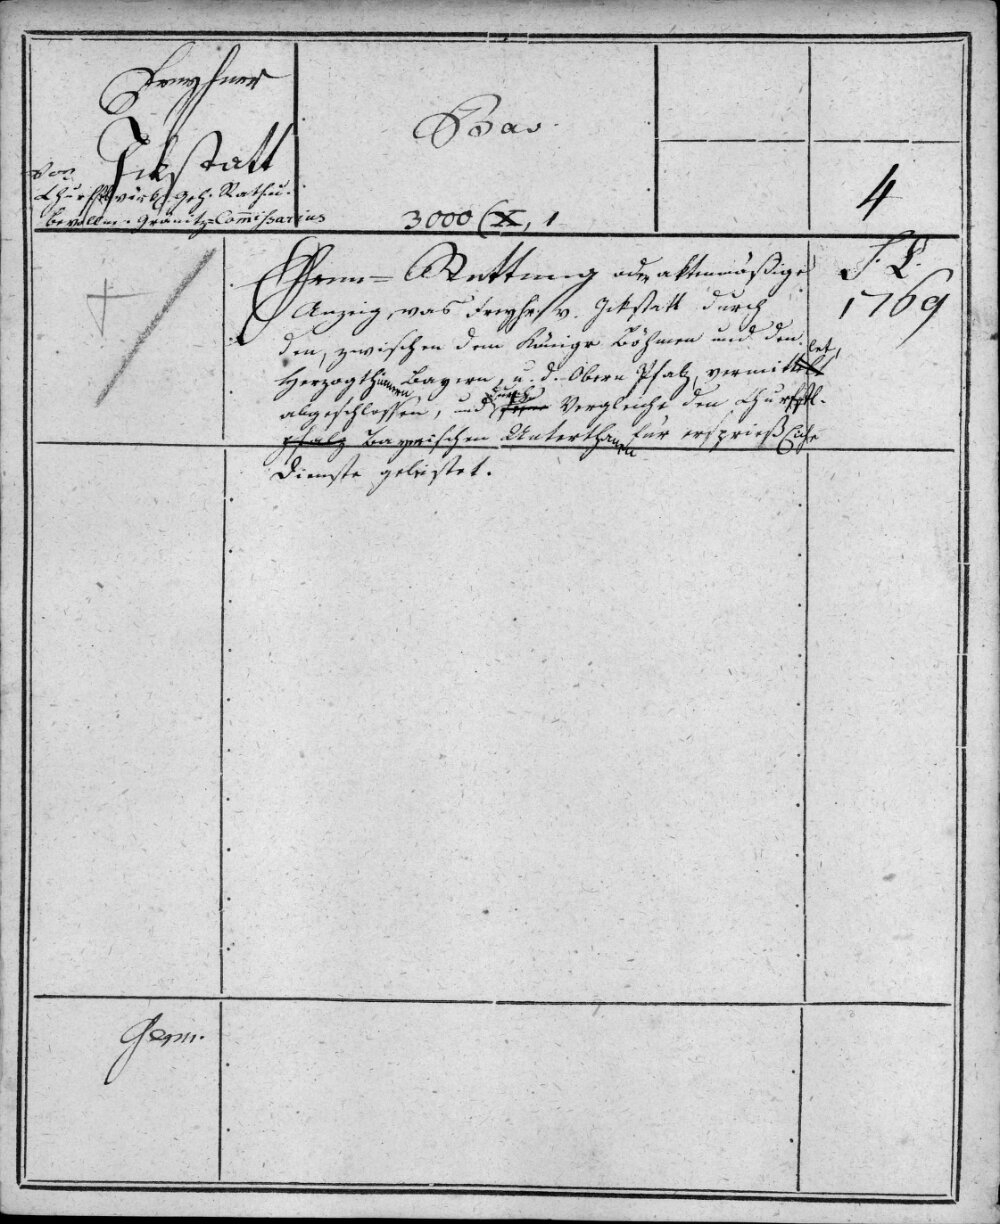 Freyherr
von Ickstatt
Churfstl. geh. Rath u.
bevollm. Gränitz-Commissarius
Bav.
3000 (X, 1
4
Ehren-Rettung oder aktenmäßige
Anzeig, was Freyhr. v. Ickstatt durch
den, zwischen dem Königr Böhmen und den
Herzogthümern Bayern, u. d. Obern Pfalz, vermittlet,
abgeschlossen, und durch Vergleiche den Churfstl.
pfalz Bayerischen Unterthanen für ersprießliche
Dienste geleistet.
S. L.
1769
Germ.